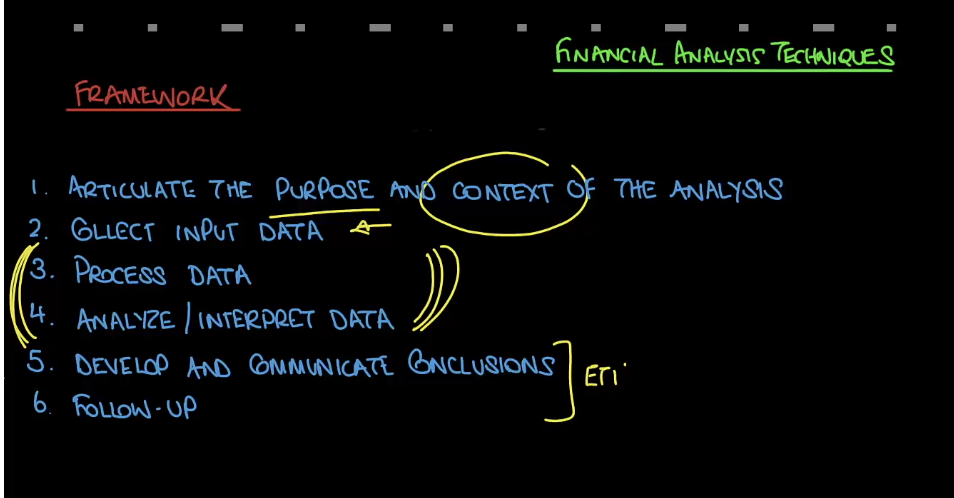 FINANCIAL ANALYSIS TECHNIQUES
FRAMEWORK
1. ARTICULATE THE PURPOSE AND CONTEXT OF THE ANALYSIS
2. COLLECT INPUT DATA
3. PROCESS DATA
4. ANALYZE / INTERPRET DATA
5. DEVELOP AND COMMUNICATE CONCLUSIONS
6. FOLLOW-UP
ETI